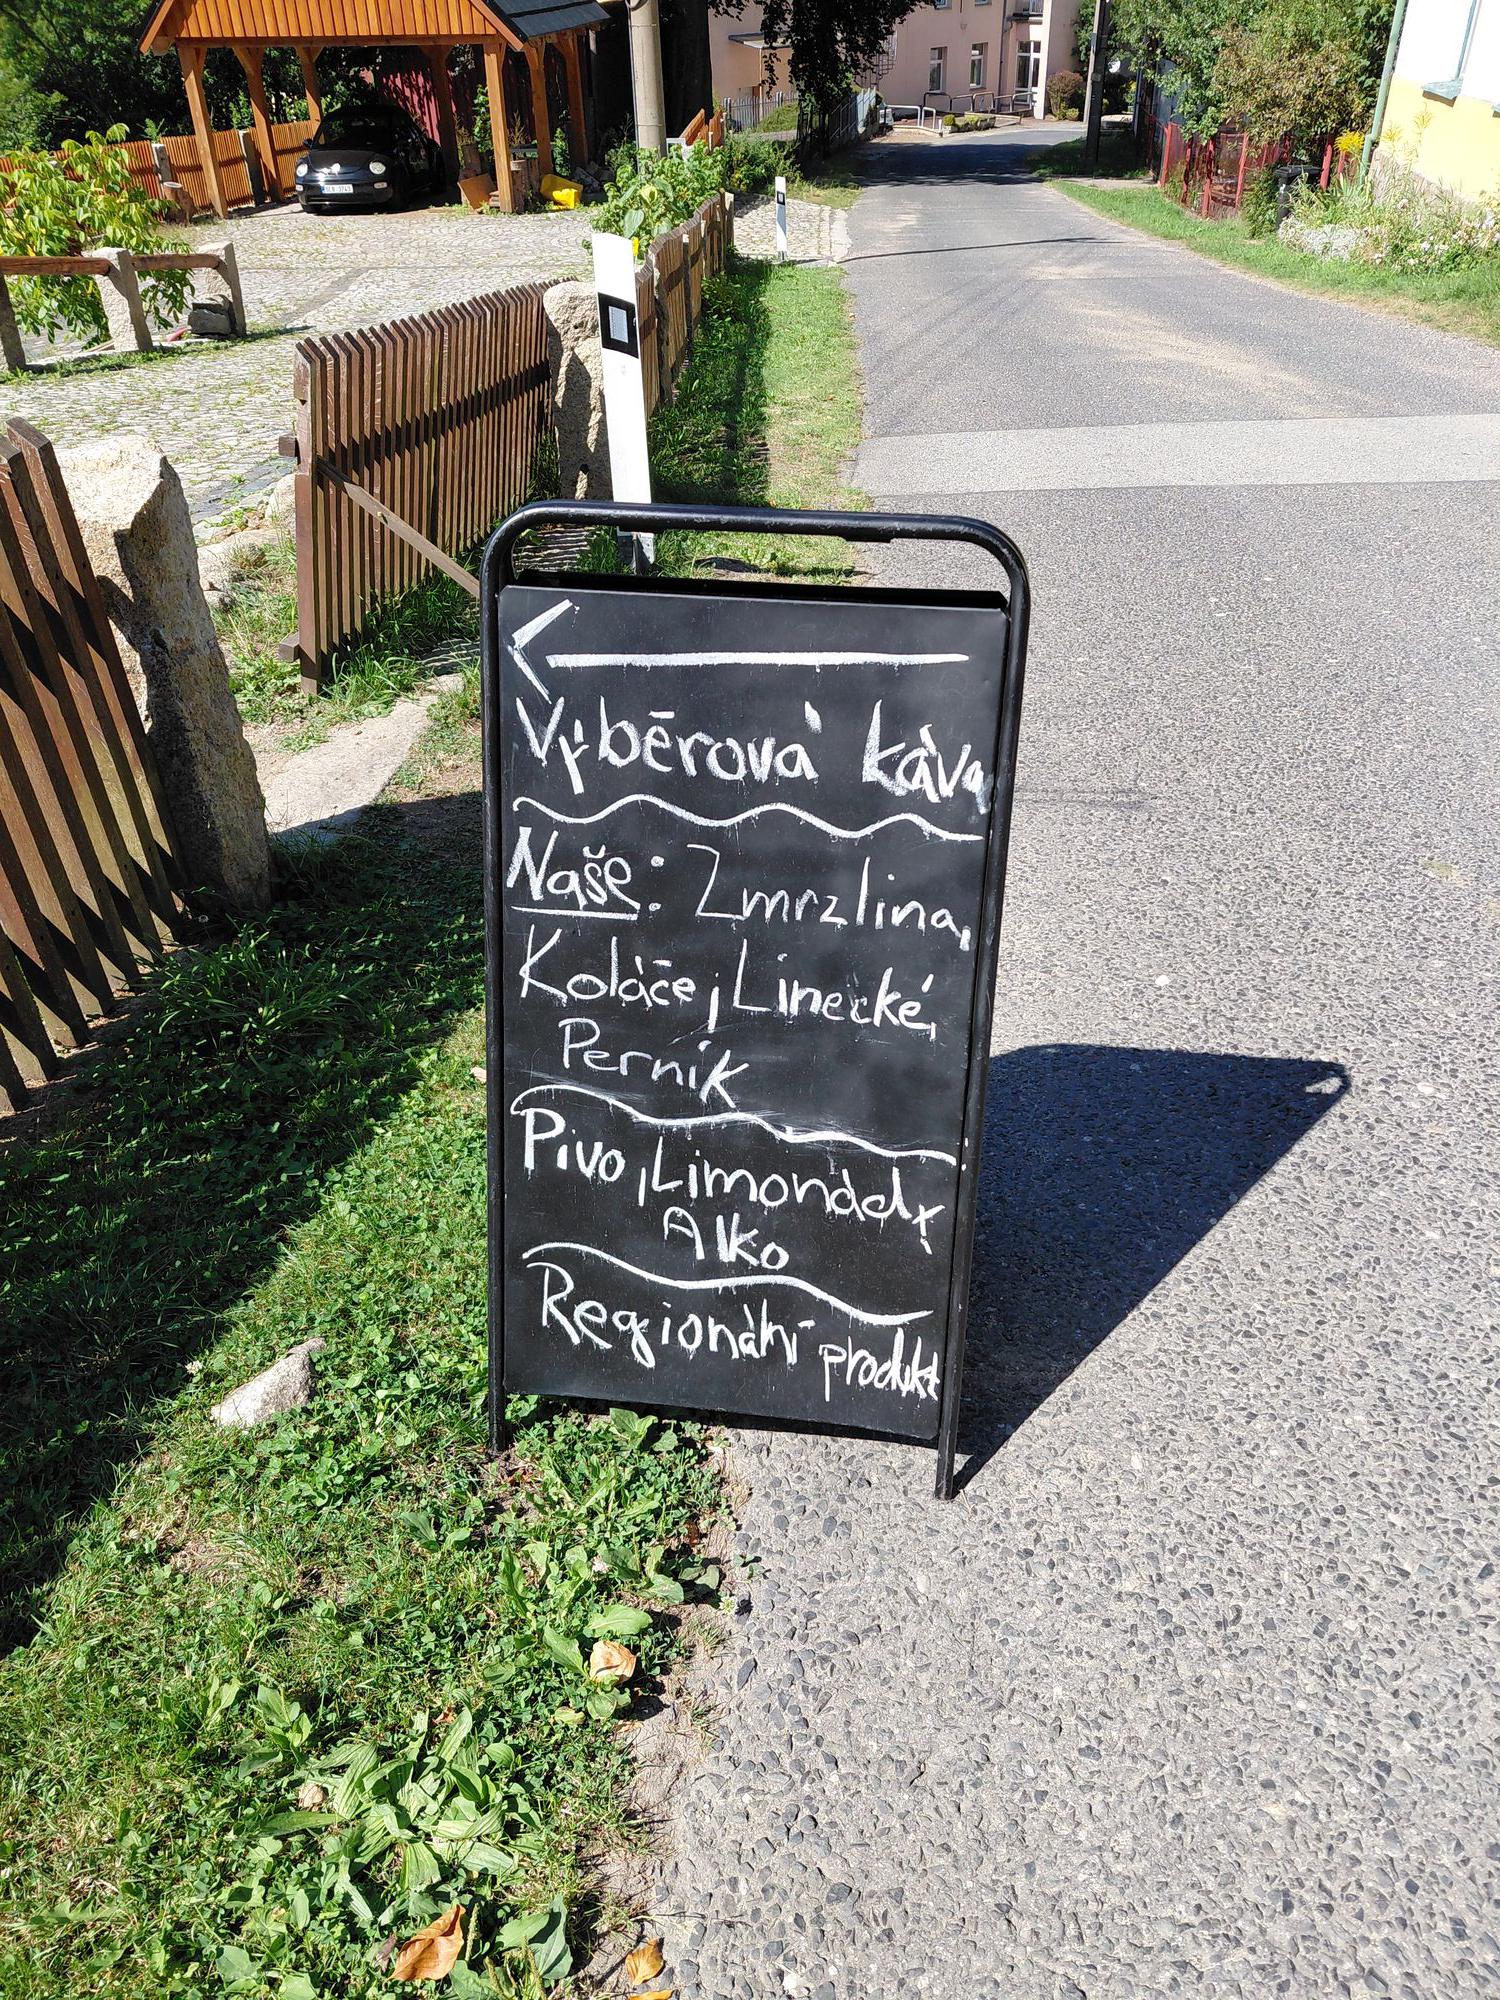 Výběrová káva
Naše: Zmrzlina,
Koláče, Linecké,
Perník
Pivo, Limonády,
Alko
Regionální produkt